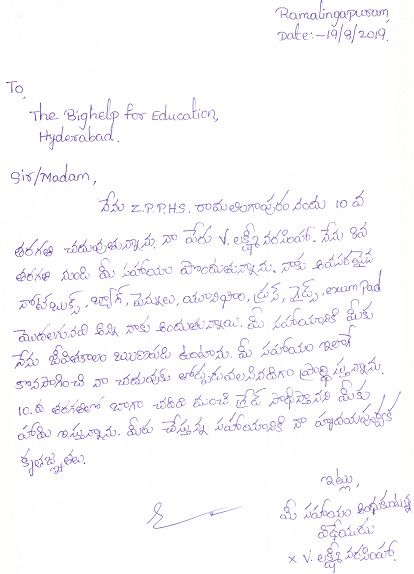 Ramalingapuram,
Date:-19/8/2019.
To,
The Bighelp for Education,
Hyderabad.
Sir/Madam,
నేను Z.P.P.H.S. రామలింగాపురం నందు 10 వ
తరగతి చదువుతున్నాను. నా పేరు V. లక్ష్మీ నరసింహా. నేను 8వ
తరగతి నుండి మీ సహాయం పొందుతున్నాను. నాకు అవసరమైన
నోట్‌బుక్స్, బ్యాగ్, పెన్నులు, యూనిఫాం, బ్రస్, గైడ్స్, exam Pad
మొదలగునవి అన్ని నాకు అందుతున్నాయి. మీ సహాయానికి మీకు
నేను జీవితకాలం ఋణపడి ఉంటాను. మీ సహాయం ఇలాగే
కొనసాగించి నా చదువుకు తోడ్పడవలసినదిగా ప్రార్థిస్తున్నాను.
10.వ తరగతిలో బాగా చదివి మంచి గ్రేడ్ సాధిస్తానని మీకు
హామీ ఇస్తున్నాను. మీరు చేస్తున్న సహాయానికి నా హృదయపూర్వక
కృతజ్ఞతలు.
ఇట్లు,
మీ సహాయం అందుకుంటున్న
విధేయుడు
x V. లక్ష్మీ నరసింహా.